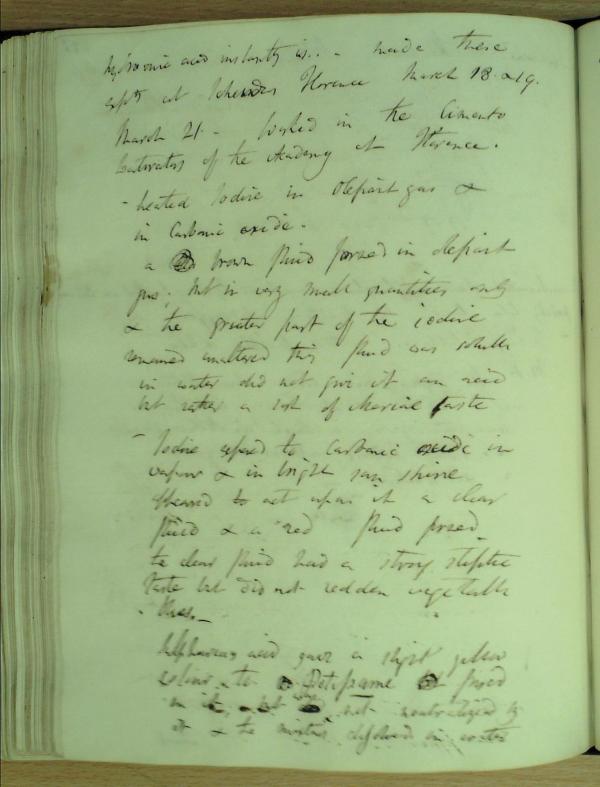 acid instantly is.. - made these
expts at Florence March 18 & 19.
March 21 - Worked in the Cimento
Laboratory of the Academy at Florence.
- heated Iodine in Olefiant gas &
in Carbonic oxide.
a brown fluid formed in olefiant
gas; but in very small quantities only
& the greater part of the iodine
remained unaltered this fluid was soluble
in water did not give it an acid
but rather a sort of taste
- Iodine exposed to Carbonic oxide in
vapour & in bright sun shine
appeared to act upon it a clear
fluid & a red fluid formed
the clear fluid had a strong styptic
taste but did not redden vegetable
blues. -
Sulphureous acid gave a slight yellow
colour to fused
in it, but not neutralized by
it & the mixture dissolved in water